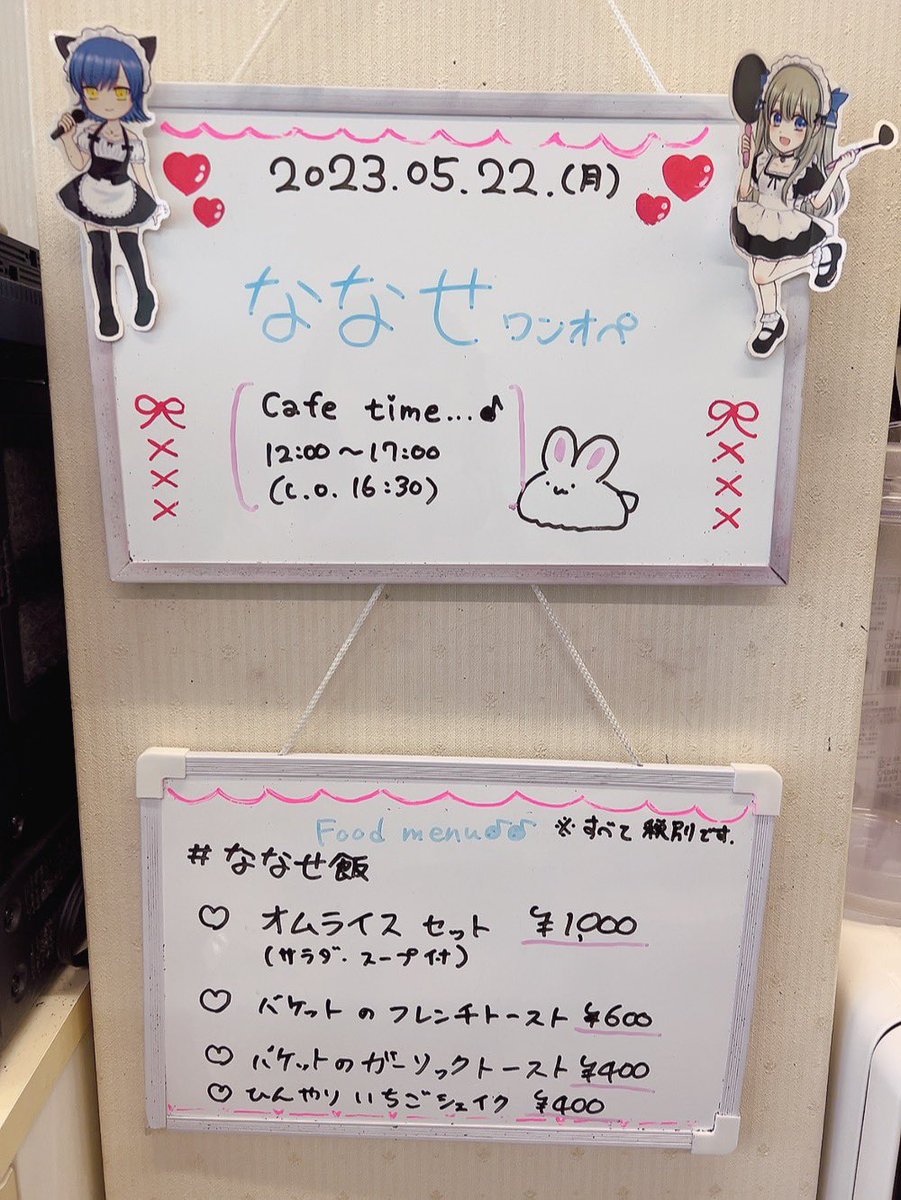 2023.05.22.(月)
ななせ ワンオペ
Cafe time...♪
12:00～17:00
(L.O. 16:30)
Food menu♪♪ ※すべて税別です.
#ななせ飯
♡ オムライス セット ¥1,000
(サラダ・スープ付)
♡ バケットのフレンチトースト ¥600
♡ バケットのガーリックトースト ¥400
♡ ひんやりいちごシェイク ¥400